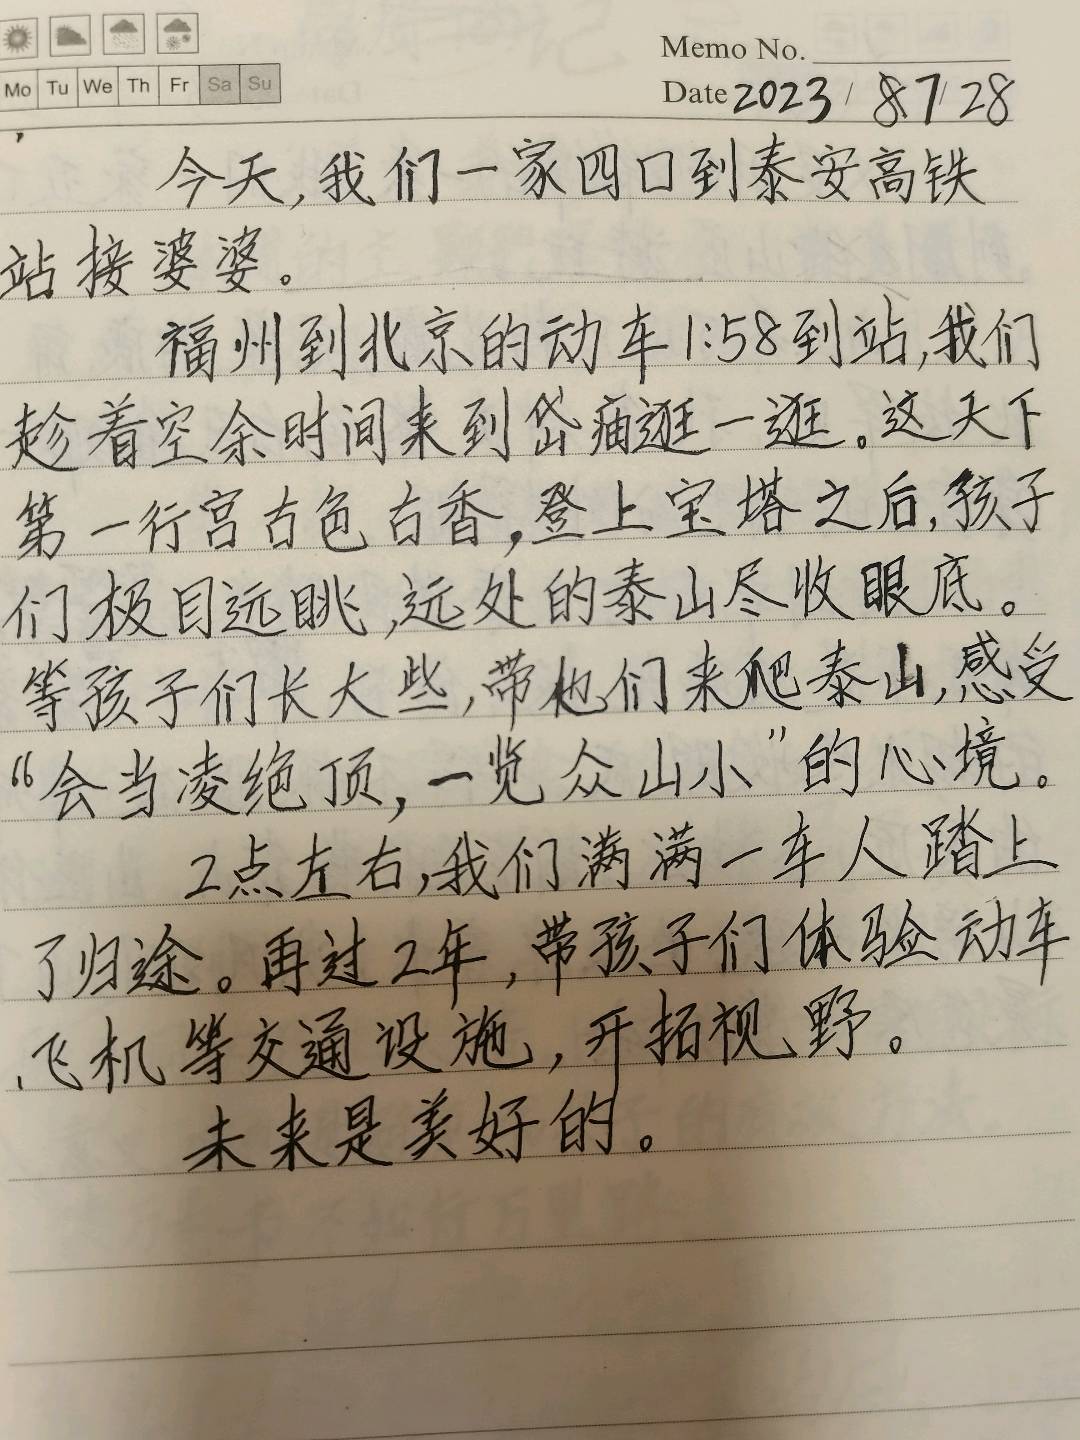 Memo No.
Mo Tu We Th Fr Sa Su
Date 2023 / 7 / 28
今天,我们一家四口到泰安高铁
站接婆婆。
福州到北京的动车1:58到站,我们
趁着空余时间来到岱庙逛一逛。这天下
第一行宫古色古香,登上宝塔之后,孩子
们极目远眺,远处的泰山尽收眼底。
等孩子们长大些,带他们来爬泰山,感受
“会当凌绝顶,一览众山小”的心境。
2点左右,我们满满一车人踏上
了归途。再过2年,带孩子们体验动车
飞机等交通设施,开拓视野。
未来是美好的。